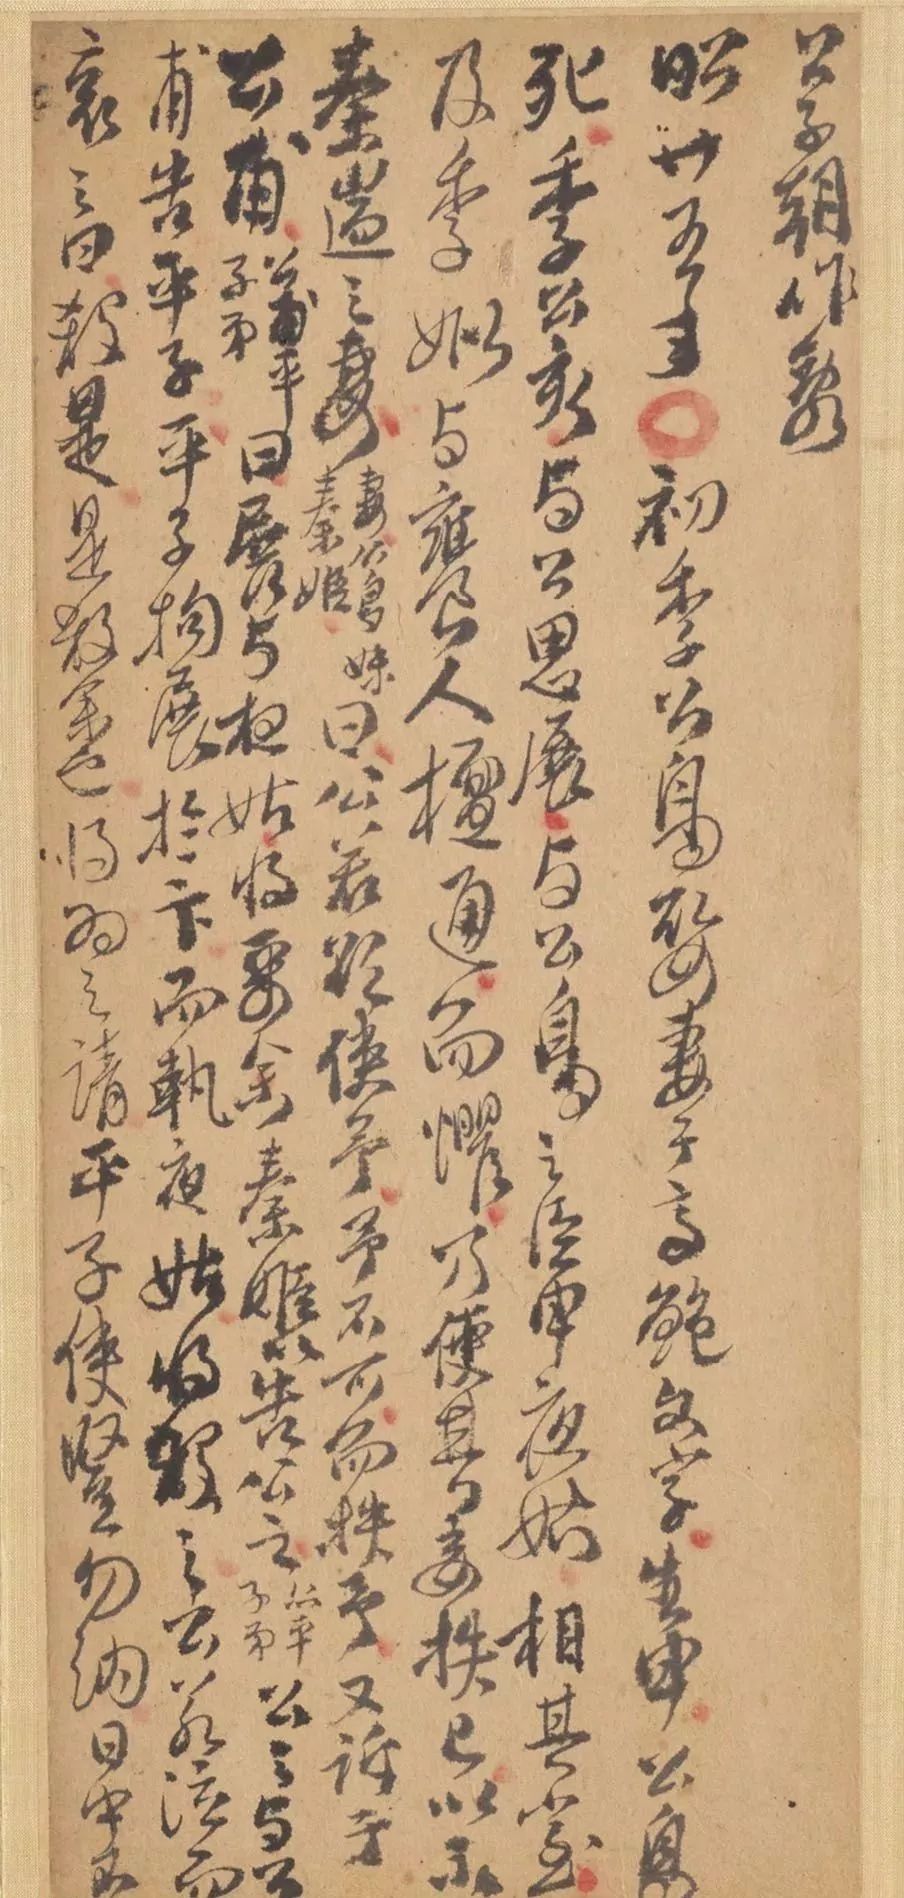 公子朝作亂
昭廿五年初季公鳥娶妻于齊鮑文子生甲公鳥
死季公亥与公思展与公鳥之臣申夜姑相其室
及季姒与饔人檀通而懼乃使其妾抶己以示
秦遄之妻妻公鳥妹秦姬曰公若欲使余余不可而抶余又訴於
公甫公甫平子弟曰展与夜姑将要余秦姬以告公之公之平子弟公之与公
甫告平子平子拘展於卞而執夜姑将殺之公若泣而
哀之曰殺是是殺余也将为之請平子使豎勿納日中不